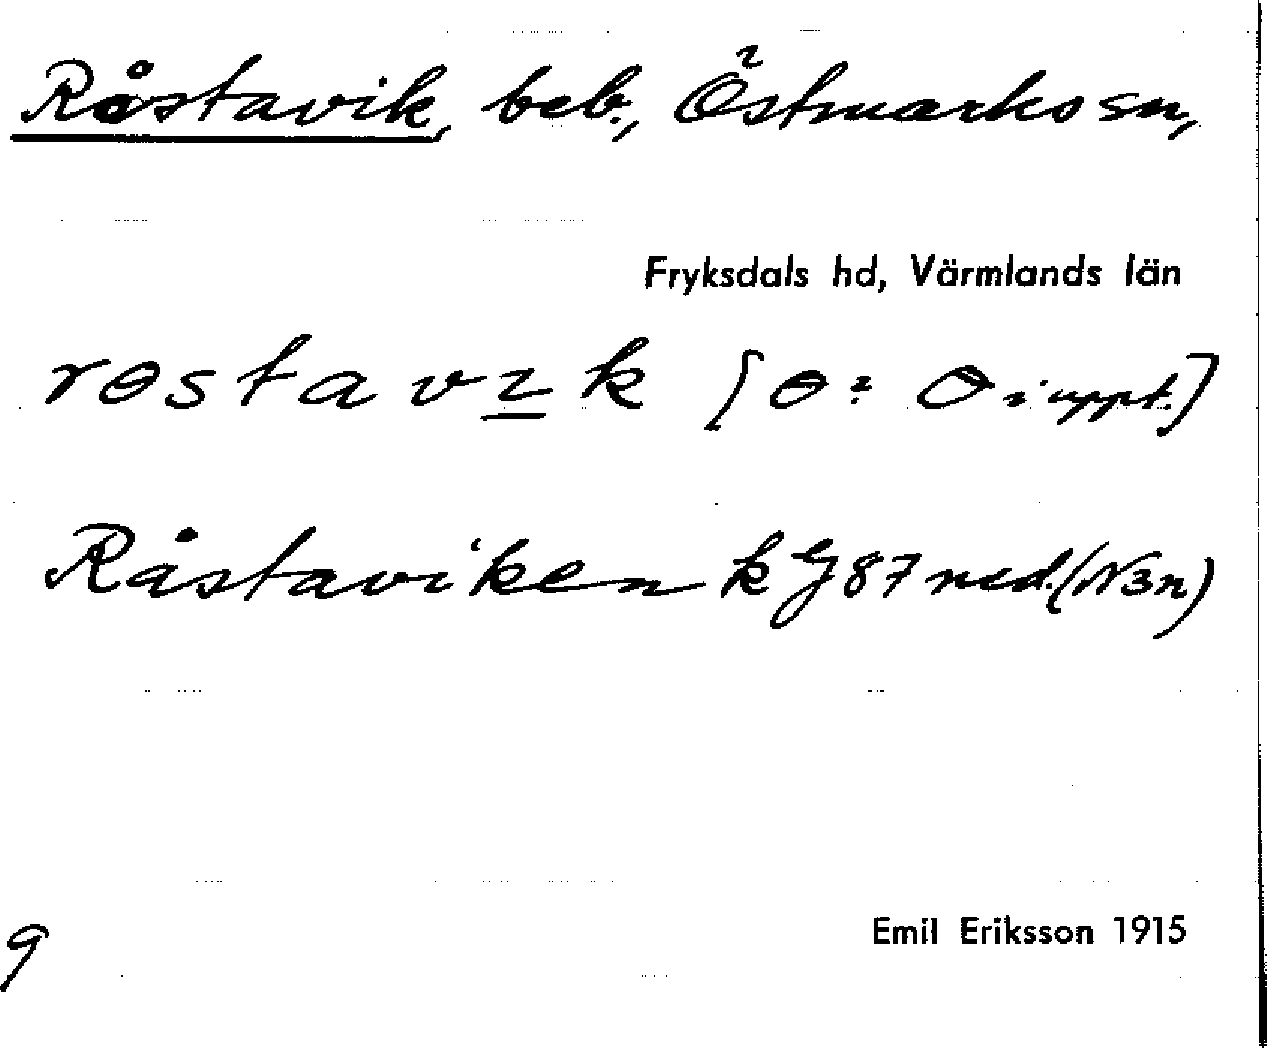 Råstavik, beb., Östmarks sn,
Fryksdals hd, Värmlands län
rɵstavɩ̲k [ɵ: ɵ i uppt.]
Råstaviken k G 87 ned. (N3n)
Emil Eriksson 1915
9